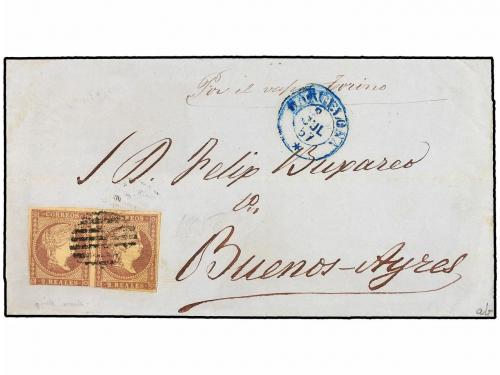 Por il vapor Torino
BARCELONA
JUL
57
S D. Felip Buxareo
en
Buenos-Ayres
CORREOS
2 REALES 2 REALES